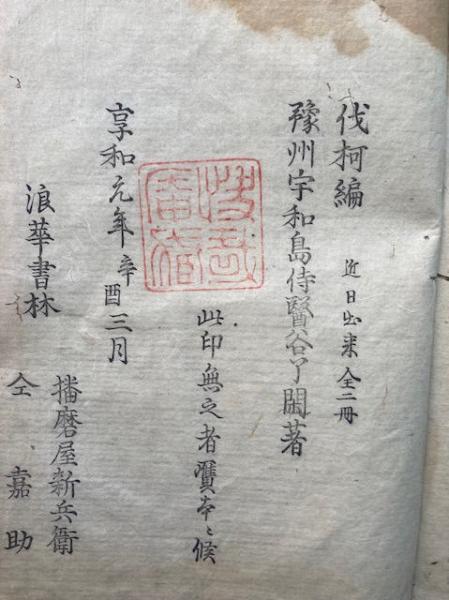 伐柯編 近日出来 全二冊
豫州宇和島侍醫谷了閑著
此印無之者贋本ゝ候
享和元年辛酉三月
浪華書林 播磨屋新兵衛
仝 嘉助